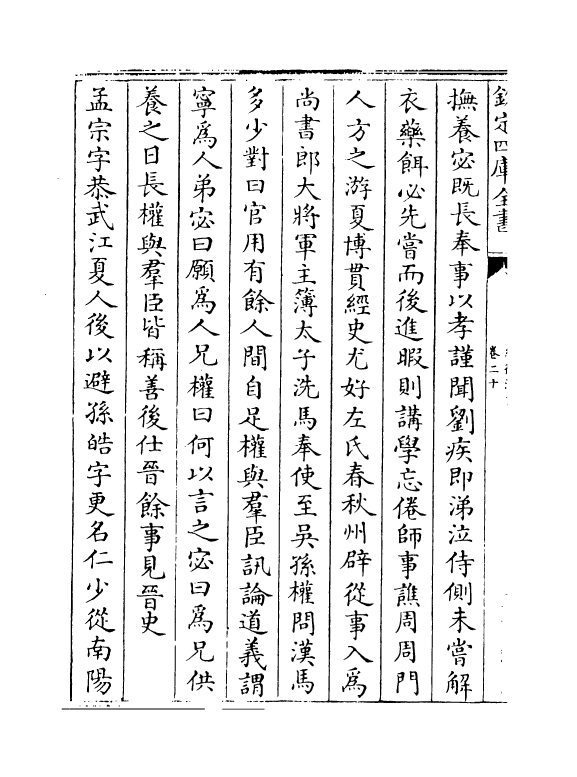 欽定四庫全書
卷二十
撫養宓既長奉事以孝謹聞劉疾即涕泣侍側未嘗解
衣藥餌必先嘗而後進暇則講學忘倦師事譙周周門
人方之游夏博貫經史尤好左氏春秋州辟從事入為
尚書郎大將軍主簿太子洗馬奉使至吳孫權問漢馬
多少對曰官用有餘人間自足權與羣臣訊論道義謂
寧為人弟宓曰願為人兄權曰何以言之宓曰為兄供
養之日長權與羣臣皆稱善後仕晉餘事見晉史
孟宗字恭武江夏人後以避孫皓字更名仁少從南陽